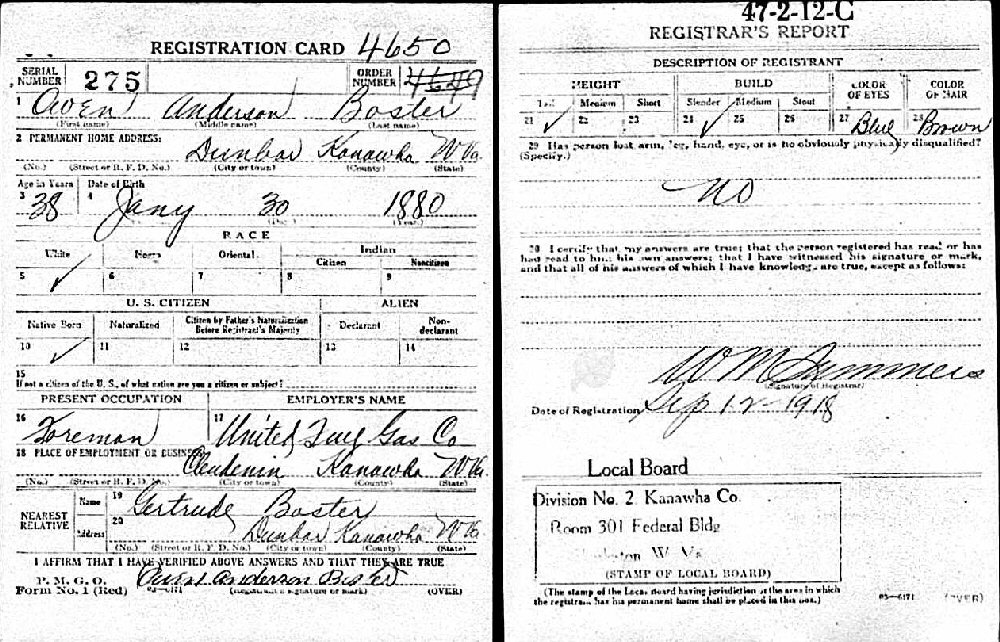 REGISTRATION CARD 4650
SERIAL NUMBER 275
ORDER NUMBER 4649
1 Owen Anderson Boster
(First name) (Middle name) (Last name)
2 PERMANENT HOME ADDRESS:
Dunbar Kanawha W Va
(No.) (Street or R. F. D. No.) (City or town) (County) (State)
Age in Years Date of Birth
3 38 4 Jany 30 1880
(Year)
RACE
White Negro Oriental Indian
Citizen Noncitizen
5 ✓ 6 7 8 9
U. S. CITIZEN ALIEN
Native Born Naturalized Citizen by Father's Naturalization Before Registrant's Majority Declarant Non-declarant
10 ✓ 11 12 13 14
15
If not a citizen of the U. S., of what nation are you a citizen or subject?
PRESENT OCCUPATION EMPLOYER'S NAME
16 Foreman 17 United Fuel Gas Co
18 PLACE OF EMPLOYMENT OR BUSINESS
Clendenin Kanawha W Va
(No.) (Street or R. F. D. No.) (City or town) (County) (State)
NEAREST RELATIVE
Name 19 Gertrude Boster
Address 20 Dunbar Kanawha W Va
(No.) (Street or R. F. D. No.) (City or town) (County) (State)
I AFFIRM THAT I HAVE VERIFIED ABOVE ANSWERS AND THAT THEY ARE TRUE
P. M. G. O.
Form No. 1 (Red) 03—6171 Owen Anderson Boster
(Registrant's signature or mark) (OVER)
47-2-12-C
REGISTRAR'S REPORT
DESCRIPTION OF REGISTRANT
HEIGHT BUILD COLOR OF EYES COLOR OF HAIR
Tall Medium Short Slender Medium Stout
21 ✓ 22 23 24 ✓ 25 26 27 Blue 28 Brown
29 Has person lost arm, leg, hand, eye, or is he obviously physically disqualified?
(Specify.)
No
30 I certify that my answers are true; that the person registered has read or has
had read to him his own answers; that I have witnessed his signature or mark,
and that all of his answers of which I have knowledge are true, except as follows:
W M Summers
(Signature of Registrar)
Date of Registration Sep 12 1918
Local Board
Division No. 2 Kanawha Co.
Room 301 Federal Bldg
W. Va.
(STAMP OF LOCAL BOARD)
(The stamp of the Local Board having jurisdiction of the area in which
the registrant has his permanent home shall be placed in this box.)
03—6171 (OVER)